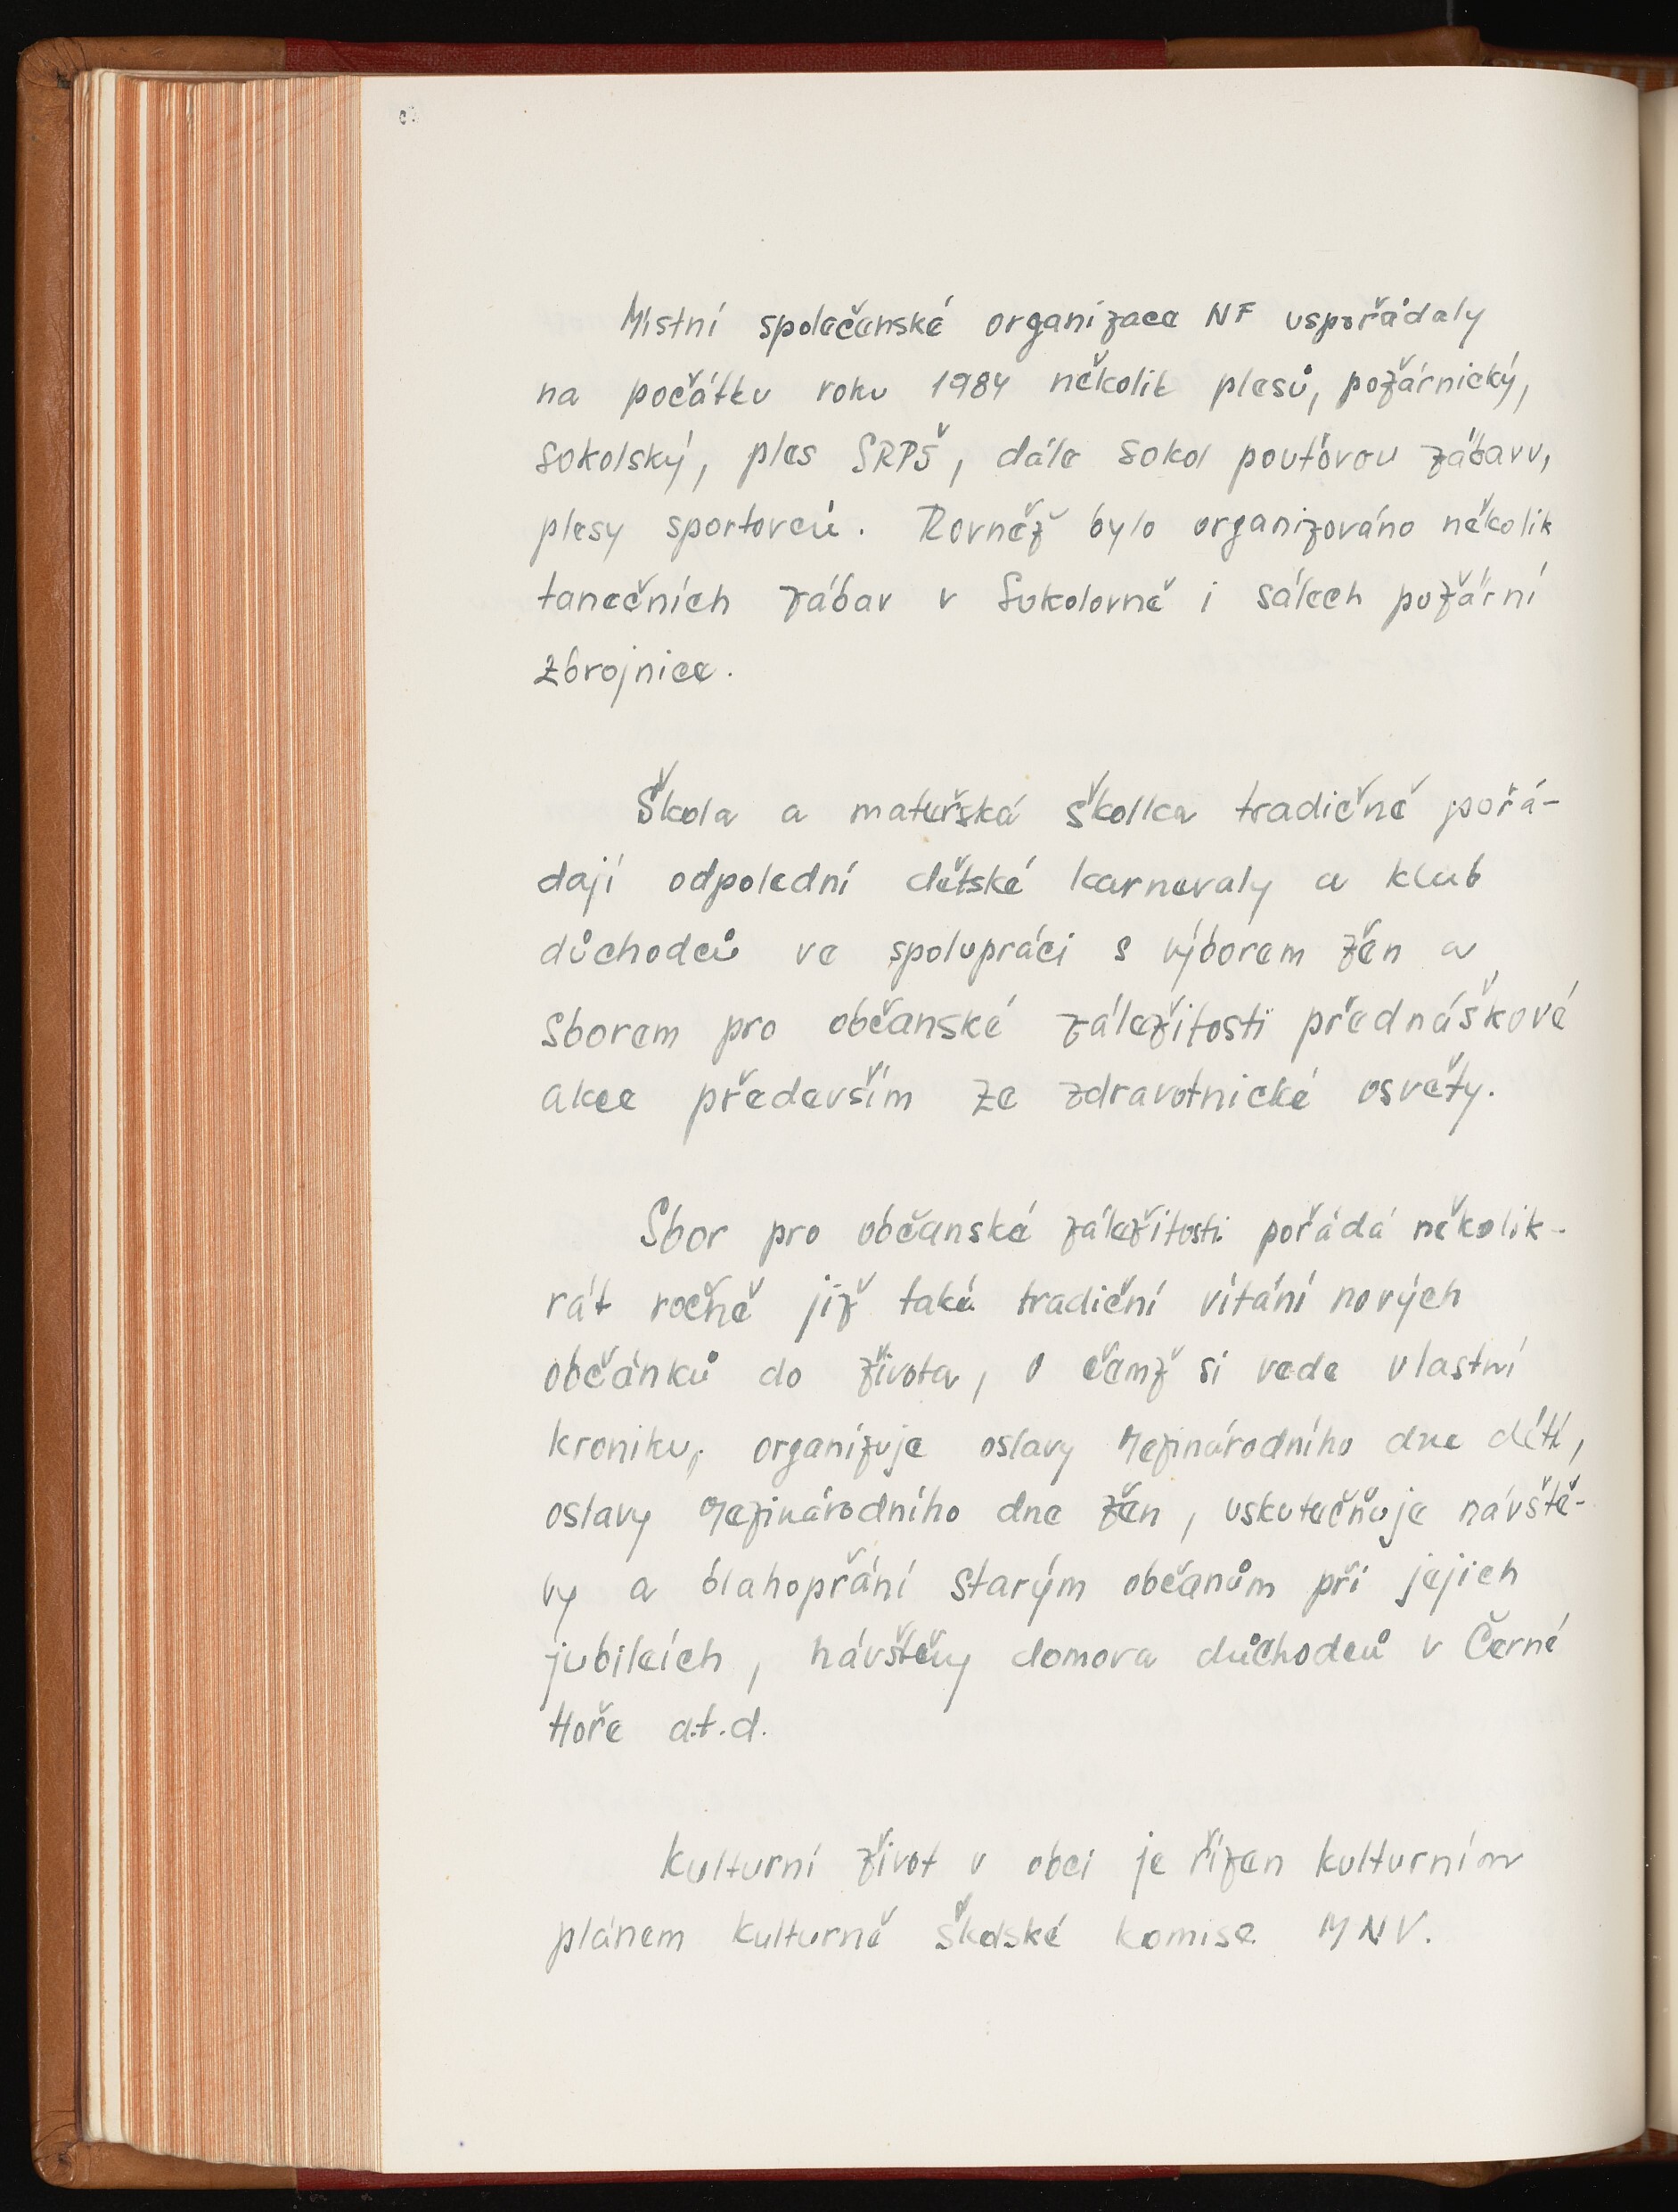 Místní společenské organizace NF uspořádaly
na počátku roku 1984 několik plesů, požárnický,
Sokolský, ples SRPŠ, dále Sokol pouťovou zábavu,
plesy sportovců. Rovněž bylo organizováno několik
tanečních zábav v Sokolovně i sálech požární
zbrojnice.
Škola a mateřská školka tradičně pořá-
dají odpolední dětské karnevaly a klub
důchodců ve spolupráci s výborem žen a
Sborem pro občanské záležitosti přednáškové
akce především ze zdravotnické osvěty.
Sbor pro občanské záležitosti pořádá několik-
rát ročně již také tradiční vítání nových
občánků do života, o čemž si vede vlastní
kroniku, organizuje oslavy Mezinárodního dne dětí,
oslavy Mezinárodního dne žen, uskutečňuje návště-
vy a blahopřání starým občanům při jejich
jubileích, návštěvy domova důchodců v Černé
Hoře a.t.d.
Kulturní život v obci je řízen kulturním
plánem kulturně školské komise MNV.